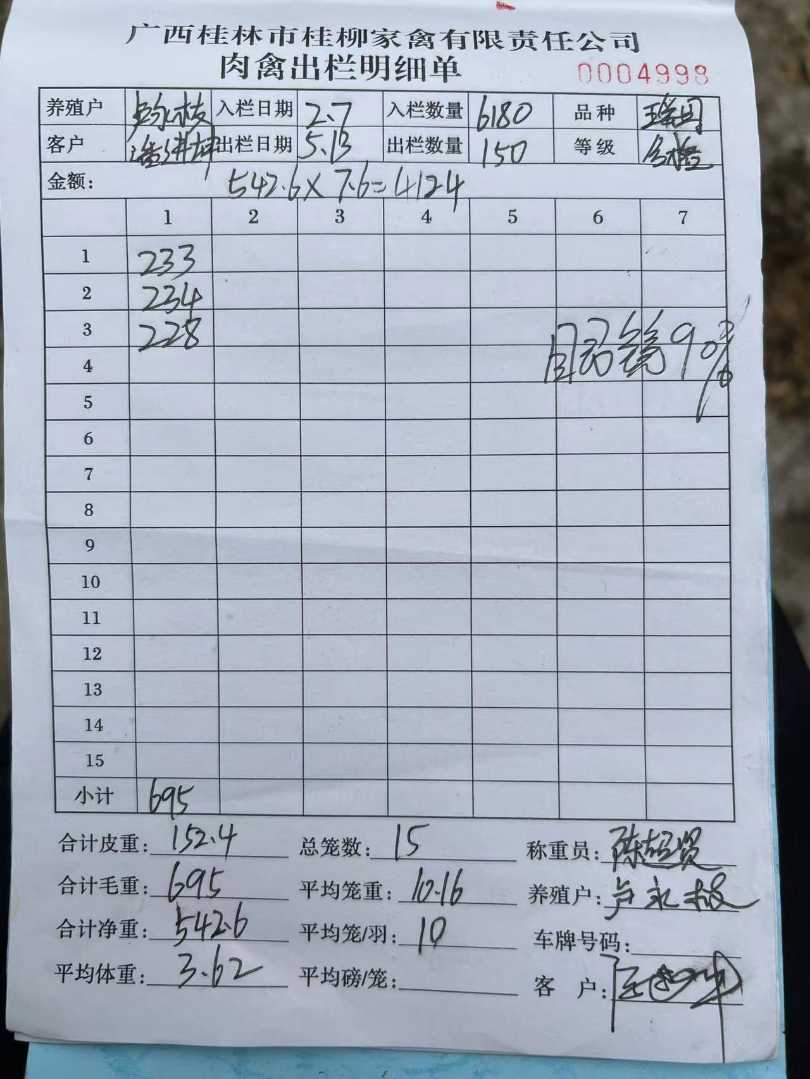 广西桂林市桂柳家禽有限责任公司
肉禽出栏明细单 0004998
养殖户 卢永枝 入栏日期 2.7 入栏数量 6180 品种
客户 出栏日期 5.13 出栏数量 150 等级 合格
金额: 542.6×7.6=4124
1 2 3 4 5 6 7
1 233
2 234
3 228
4
5
6
7
8
9
10
11
12
13
14
15
90%
小计 695
合计皮重: 152.4 总笼数: 15 称重员:
合计毛重: 695 平均笼重: 10.16 养殖户: 卢永枝
合计净重: 542.6 平均笼/羽: 10 车牌号码:
平均体重: 3.62 平均磅/笼: 客户: